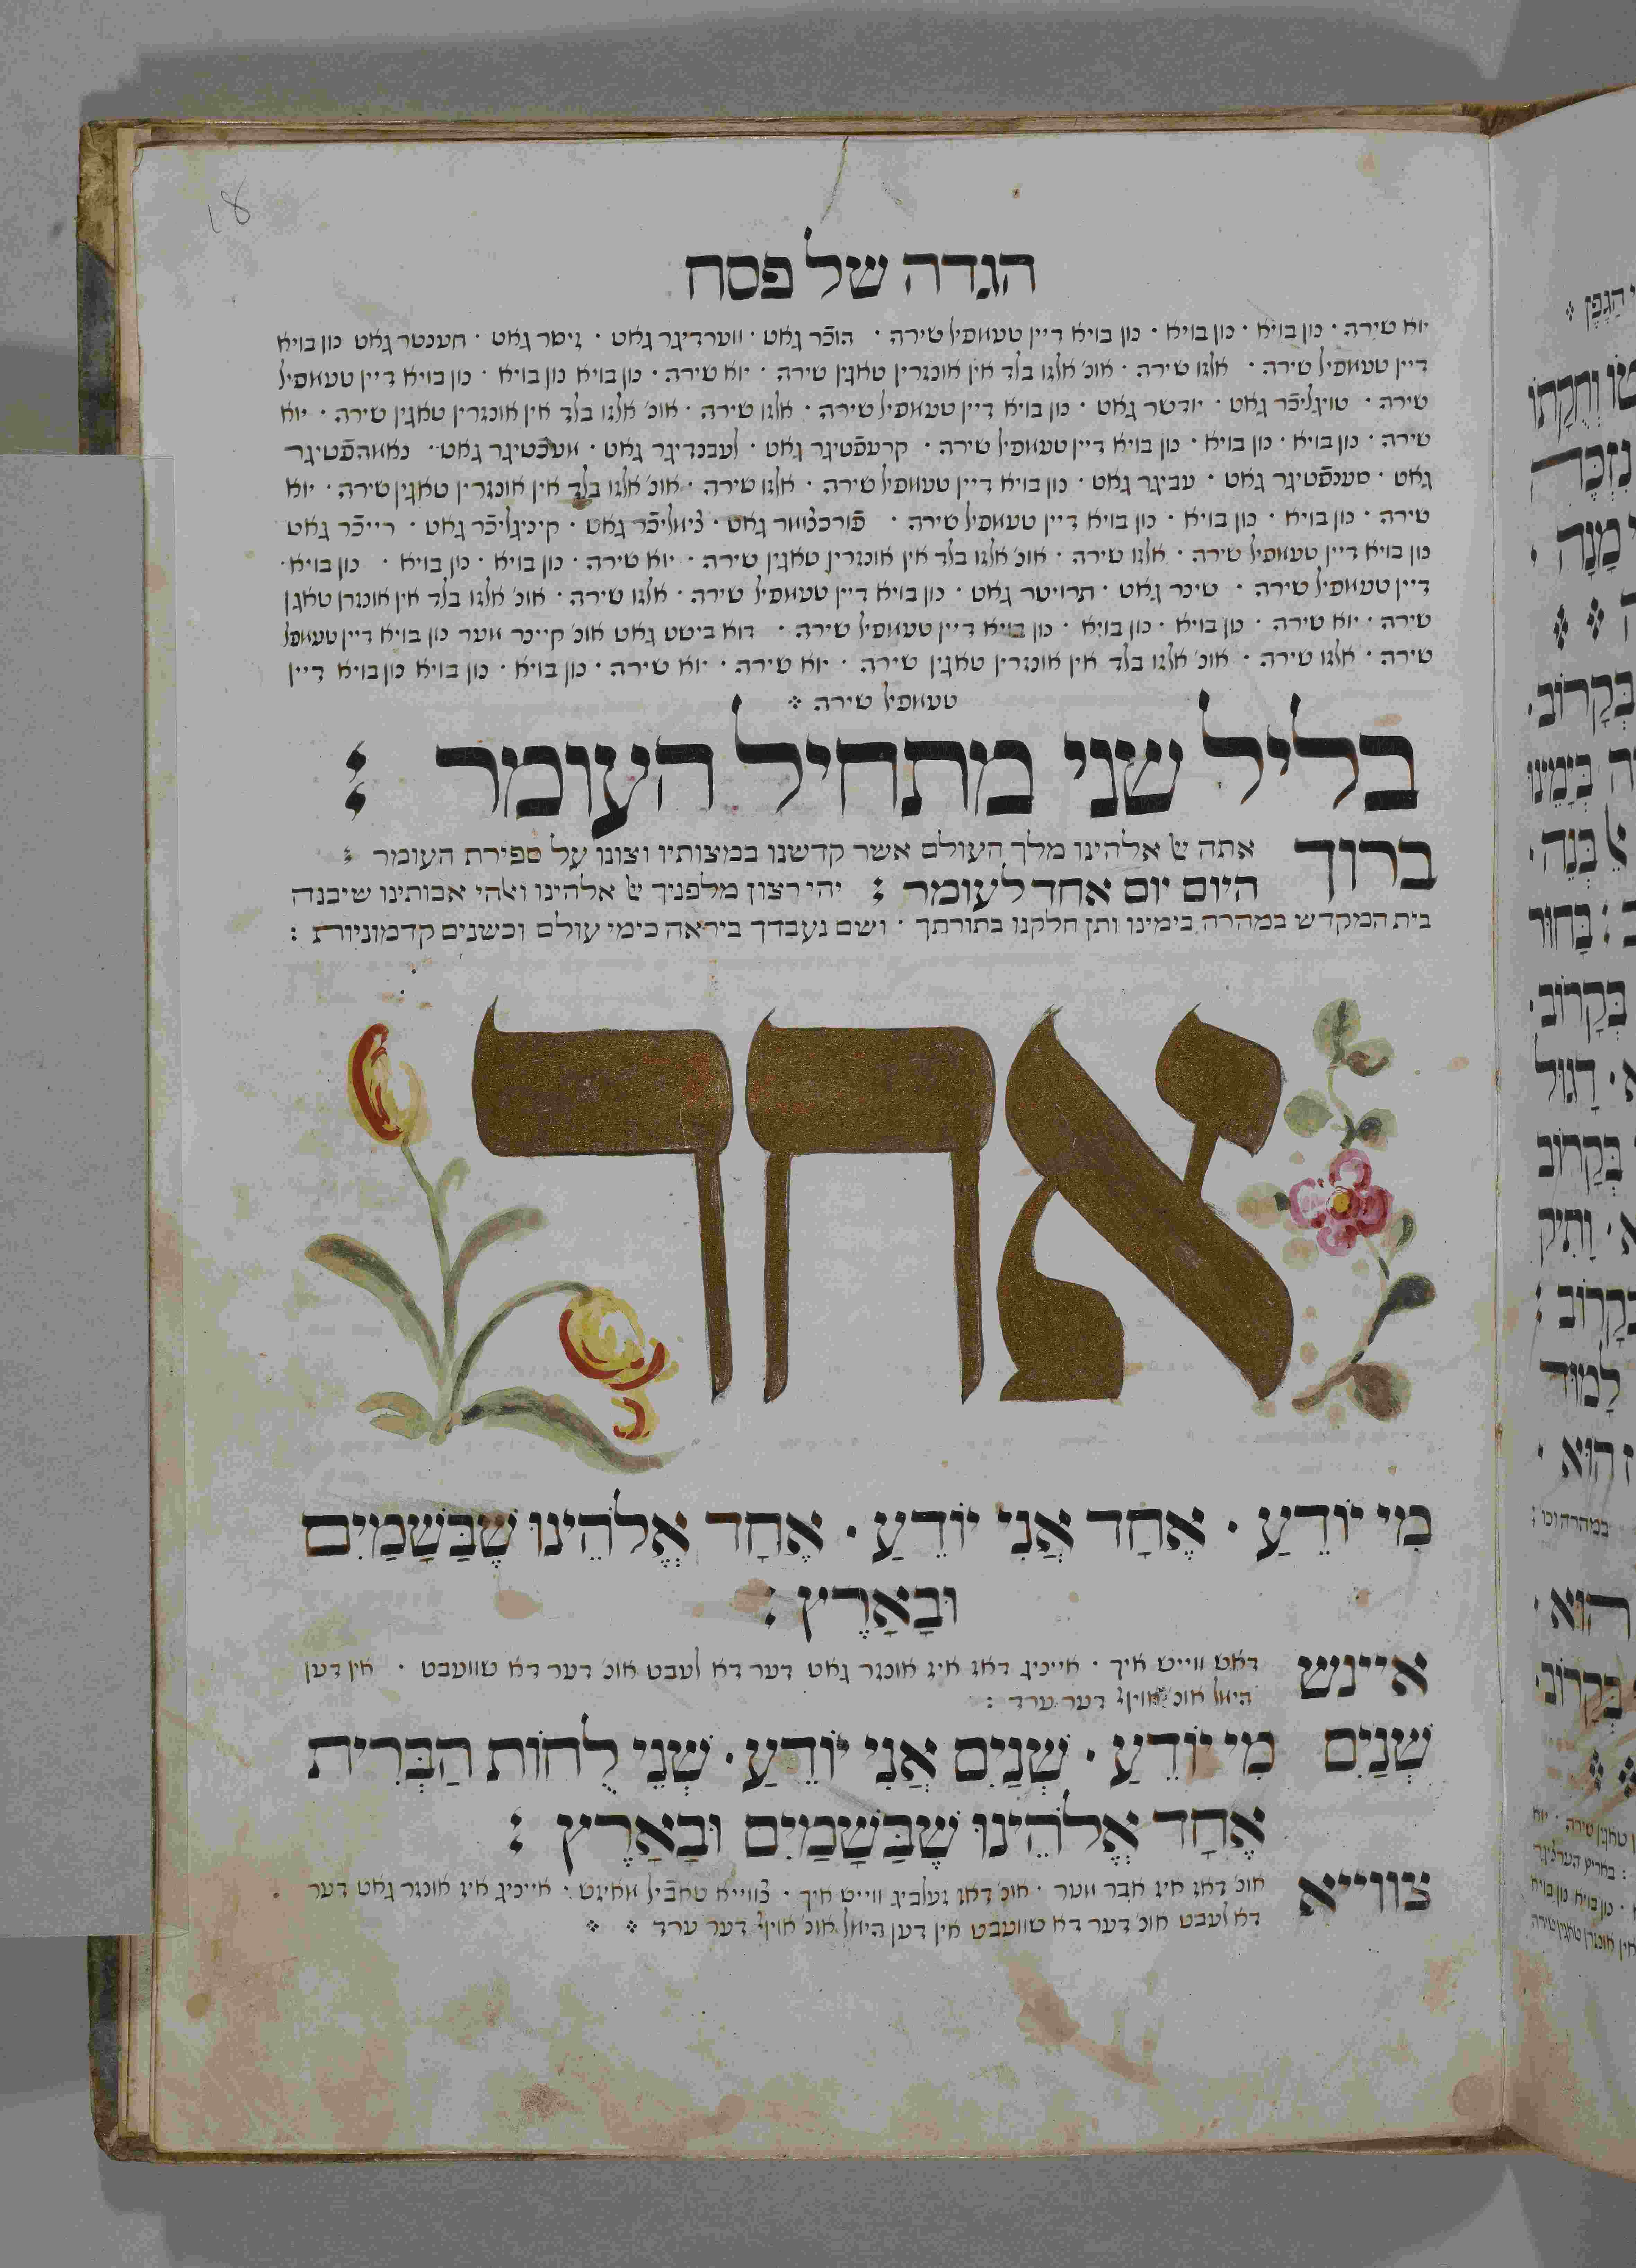 18
הגדה של פסח
יוא שירה · נון בויא · נון בויא · נון בויא דיין טעמפיל שירה · הוכר גאט · ווערדיגר גאט · זיסר גאט · חענטר גאט נון בויא
דיין טעמפיל שירה · אלזו שירה · אונ' אלזו בלד אין אונזרין טאגין שירה · יוא שירה · נון בויא נון בויא · נון בויא דיין טעמפיל
שירה · טויגליכר גאט · יודשר גאט · נון בויא דיין טעמפיל שירה · אלזו שירה · אונ' אלזו בלד אין אונזרין טאגין שירה · יוא
שירה · נון בויא · נון בויא · נון בויא דיין טעמפיל שירה · קרעפטיגר גאט · לעבנדיגר גאט · מעכטיגר גאט · נאמהפטיגר
גאט · סענפטיגר גאט · עביגר גאט · נון בויא דיין טעמפיל שירה · אלזו שירה · אונ' אלזו בלד אין אונזרין טאגין שירה · יוא
שירה · נון בויא · נון בויא · נון בויא דיין טעמפיל שירה · פורכטזמר גאט · צימליכר גאט · קיניגליכר גאט · רייכר גאט
נון בויא דיין טעמפיל שירה · אלזו שירה · אונ' אלזו בלד אין אונזרין טאגין שירה · יוא שירה · נון בויא · נון בויא · נון בויא ·
דיין טעמפיל שירה · שינר גאט · תרויטר גאט · נון בויא דיין טעמפיל שירה · אלזו שירה · אונ' אלזו בלד אין אונזרן טאגן
שירה · יוא שירה · נון בויא · נון בויא · נון בויא דיין טעמפיל שירה · דוא בישט גאט אונ' קיינר מער נון בויא דיין טעמפל
שירה · אלזו שירה · אונ' אלזו בלד אין אונזרין טאגין שירה · יוא שירה · יוא שירה · נון בויא · נון בויא נון בויא דיין
טעמפיל שירה
בליל שני מתחיל העומר :
ברוך אתה ײ אלהינו מלך העולם אשר קדשנו במצותיו וצונו על ספירת העומר :
היום יום אחד לעומר : יהי רצון מלפניך ײ אלהינו ואלהי אבותינו שיבנה
בית המקדש במהרה בימינו ותן חלקנו בתורתך · ושם נעבדך ביראה כימי עולם וכשנים קדמוניות :
אחד
מִי יוֹדֵעַ · אֶחָד אֲנִי יוֹדֵעַ · אֶחָד אֱלֹהֵינוּ שֶׁבַּשָּׁמַיִם
וּבָאָרֶץ :
איינש דאש ווייש איך · אייניג דאז איז אונזר גאט דער דא לעבט אונ' דער דא שוועבט · אין דען
הימל אונ' אויף דער ערד :
שְׁנַיִם מִי יוֹדֵעַ · שְׁנַיִם אֲנִי יוֹדֵעַ · שְׁנֵי לֻחוֹת הַבְּרִית
אֶחָד אֱלֹהֵינוּ שֶׁבַּשָּׁמַיִם וּבָאָרֶץ :
צווייא אונ' דאז איז אבר מער · אונ' דאז זעלביג ווייש איך · צווייא טאביל מאזיש · אייניג איז אונזר גאט דער
דא לעבט אונ' דער דא שוועבט אין דען הימל אונ' אויף דער ערד